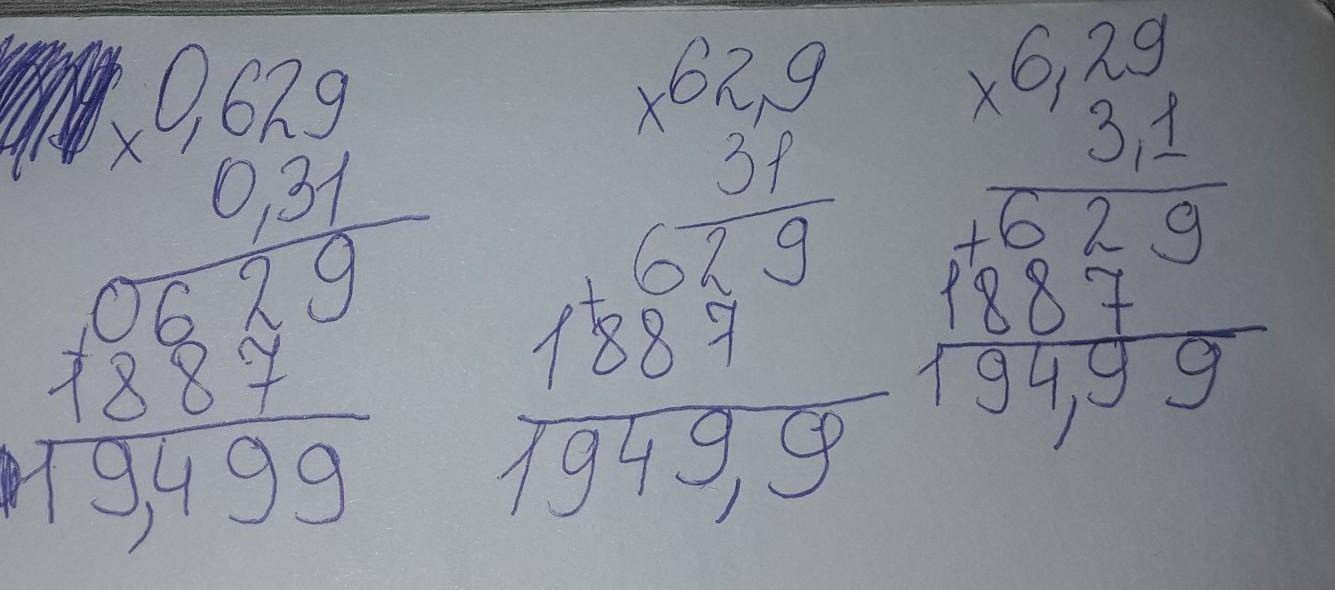 × 0,629
0,31
0629
+
1887
19,499
× 62,9
31
629
+
1887
1949,9
× 6,29
3,1
+ 629
1887
194,99